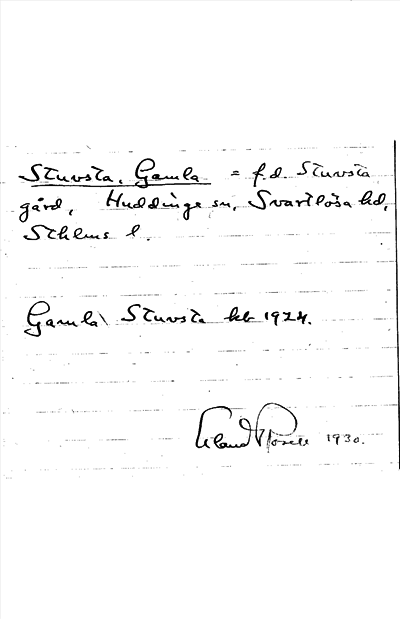 Stuvsta, Gamla = f.d. Stuvsta
gård, Huddinge sn, Svartlösa hd,
Sthlms l.
Gamla Stuvsta kb 1924.
Erland Rosell 1930.